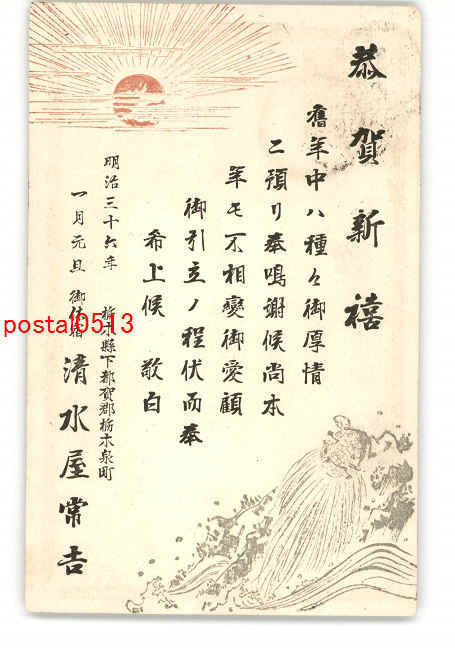 恭賀新禧
舊年中ハ種々御厚情
ニ預リ奉鳴謝候尚本
年モ不相變御愛顧
御引立ノ程伏而奉
希上候 敬白
明治三十六年
一月元旦
栃木縣下都賀郡栃木泉町
御
清水屋常吉
postal0513